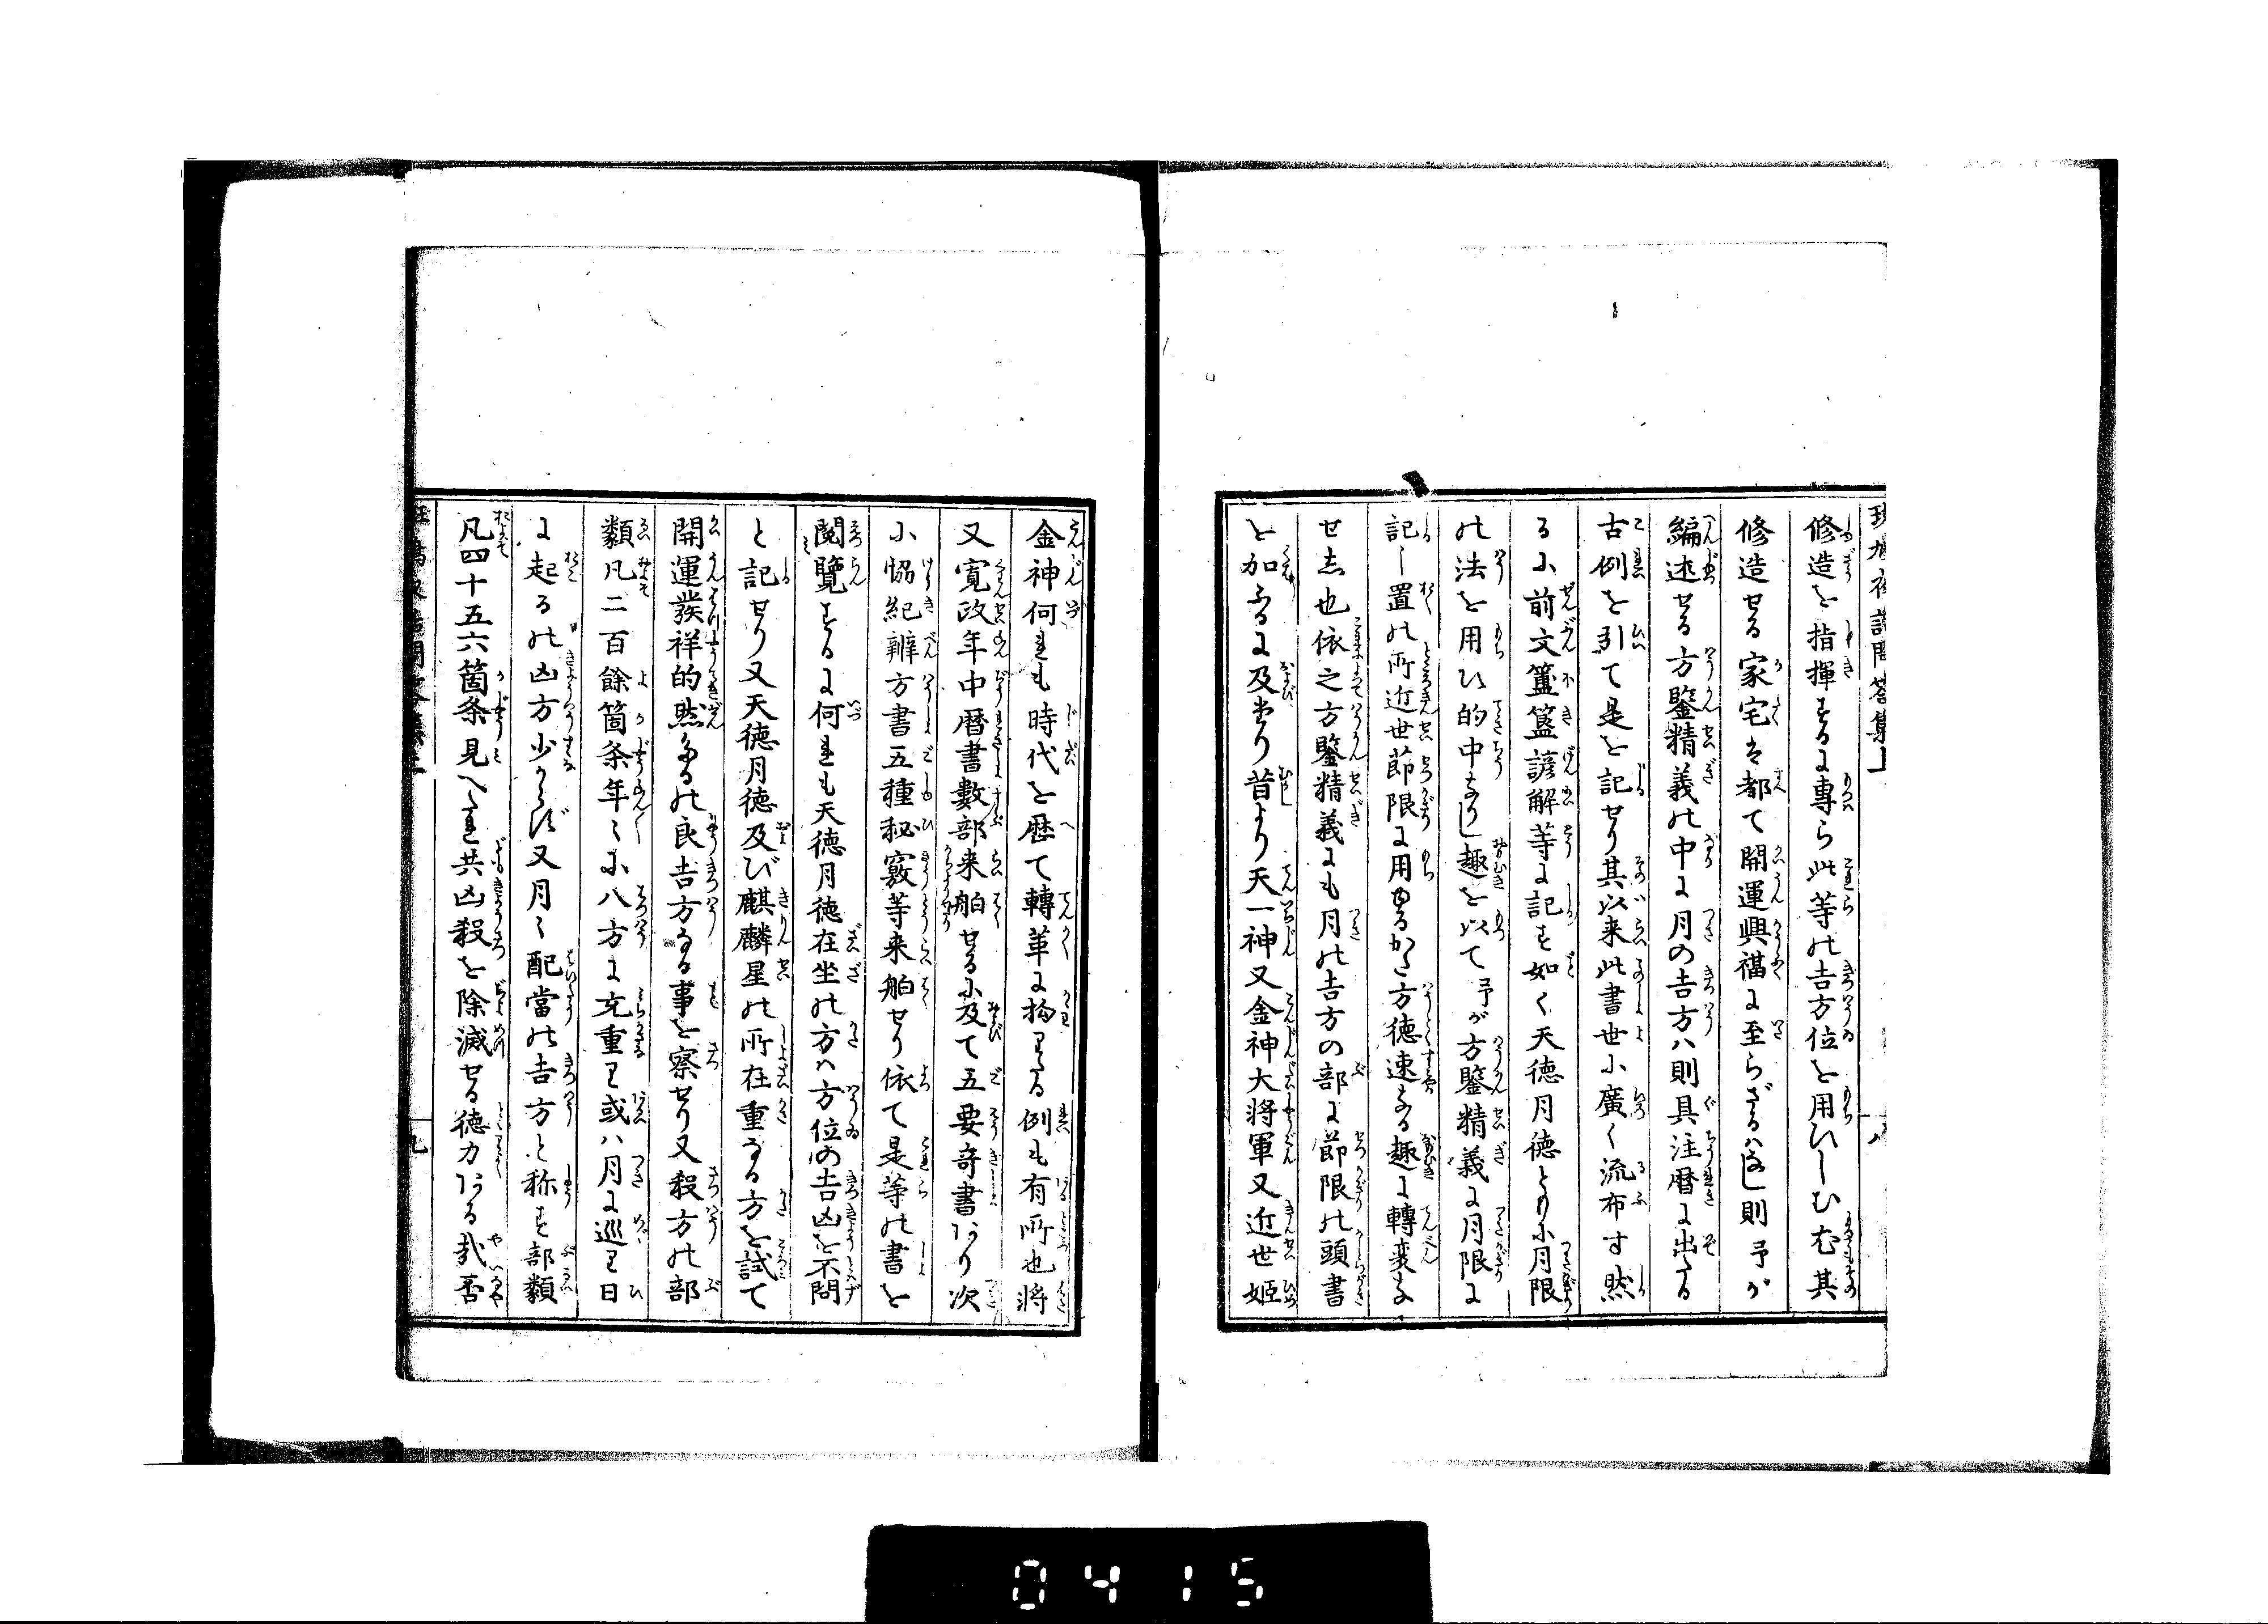 修造を指揮するに專ら此等の吉方位を用ひしむ其
修造せる家宅は都て開運興福に至らざるハなし則予が
編述せる方鑒精義の中に月の吉方ハ則具注暦に出たる
古例を引て是を記せり其以来此書世に廣く流布す然
るに前文簠簋諺解等に記す如く天徳月徳ともに月限
の法を用ひ的中なりし趣を以て予が方鑒精義に月限に
記し置の所近世節限に用ゆるかた方徳速なる趣に轉変な
せし也依之方鑒精義にも月の吉方の部に節限の頭書
を加ふるに及たり昔より天一神又金神大将軍又近世姫
金神何れも時代を歴て轉革に拘りたる例も有所也将
又寛政年中暦書數部来舶せるに及て五要奇書あり次
に協紀辨方書五種秘竅等来舶せり依て是等の書を
閲覽するに何れも天徳月徳在坐の方ハ方位の吉凶を不問
と記せり又天徳月徳及び麒麟星の所在重なる方を試て
開運發祥的然たるの良吉方なる事を察せり又殺方の部
類凡二百餘箇条年々に八方に充重り或ハ月に巡り日
に起るの凶方少からず又月々配當の吉方と称す部類
凡四十五六箇条見へたれ共凶殺を除滅せる徳力ある哉否
九
0415